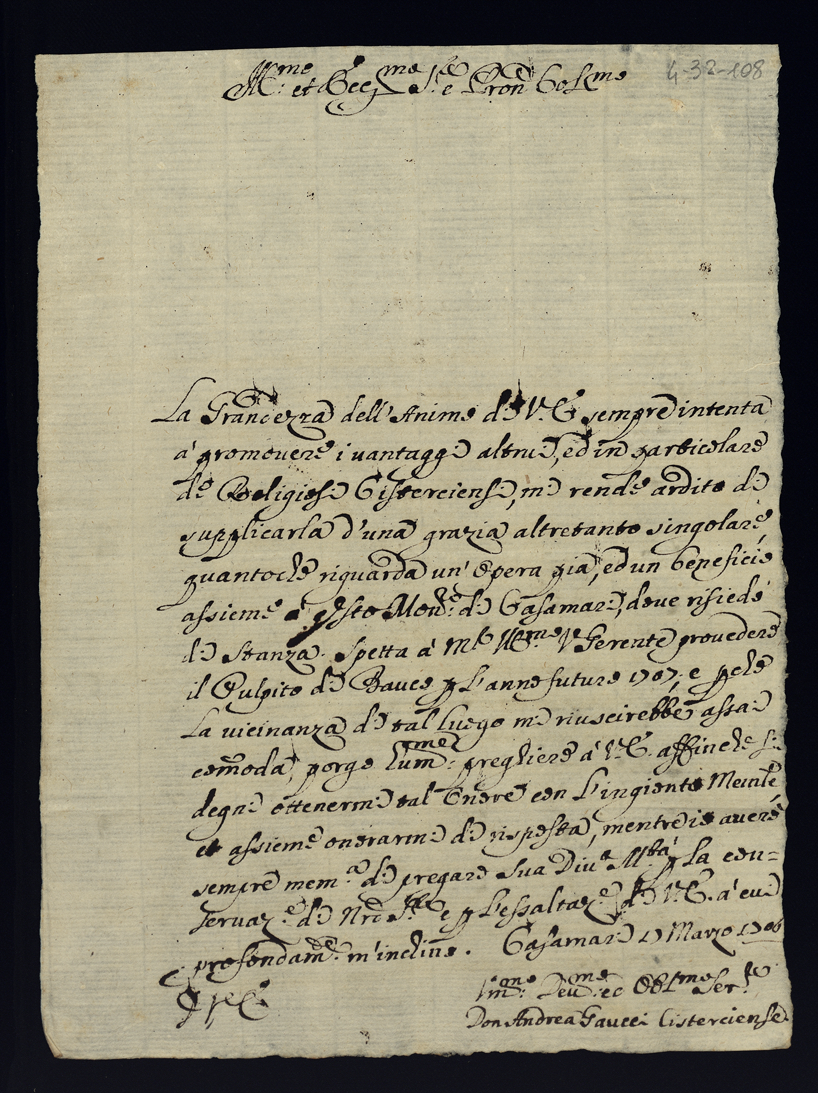 Ill:me et Ecc:me S:re e Pron Col:me
4-32-108
La Grandezza dell'Animo di V.E. sempre intenta
à promovere i vantaggi altrui, ed in particolare
de Religiosi Cisterciensi, mi rende ardito di
supplicarla d'una grazia altretanto singolare,
quantoche riguarda un'opera pia, ed un beneficio
assieme à qsto Mon:ro di Casamari, dove risiede
di stanza. Spetta à M. Ill:mo V.Gerente provedere
il Pulpito di Bauco p l'anno futuro 1707, e pche
La vicinanza di tal luogo mi riuscirebbe assai
comoda, porgo hum:me preghiere à V.E. affinche si
degni ottenermi tal onore con l'ingionto Mem:le,
et assieme onorarmi di risposta, mentre io averò
sempre mem:a di pregare Sua Div:a M:tà p la con=
servaz:e di Nro S:re e p l'essaltaz:e di V.E. à cui
profondam:te m'inchino. Casamari 17 Marzo 1706
D V.E.
Um:mo Dev:mo ed Obl:mo Ser:re
Don Andrea Gaucci Cisterciense